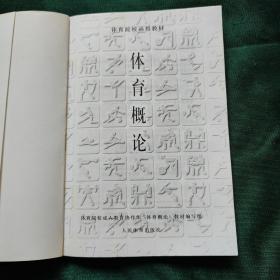 体育院校函授教材
体育概论
体育院校成人教育协作组《体育概论》教材编写组
人民体育出版社